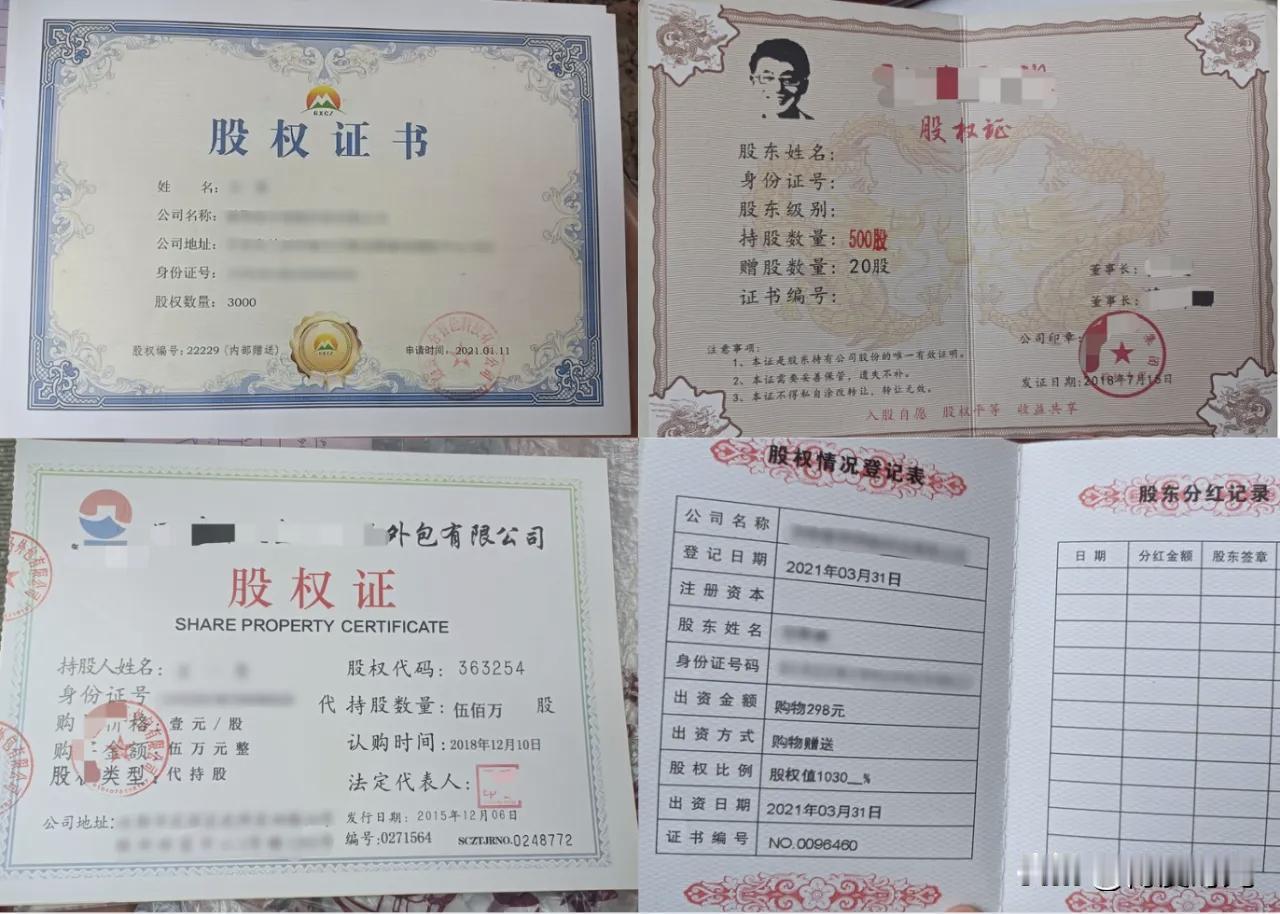 GXCZ
股权证书
姓 名：
公司名称：
公司地址：
身份证号：
股权数量： 3000
股权编号：22229（内部赠送）
申请时间：2021.01.11
股权证
股东姓名：
身份证号：
股东级别：
持股数量：500股
赠股数量：20股
证书编号：
董事长：
董事长：
公司印章：
发证日期：2018年7月15日
注意事项：
1、本证是股东持有公司股份的唯一有效证明。
2、本证需要妥善保管，遗失不补。
3、本证不得私自涂改转让，转让无效。
入股自愿 股权平等 收益共享
外包有限公司
股权证
SHARE PROPERTY CERTIFICATE
持股人姓名：
股权代码：363254
身份证号
代持股数量：伍佰万 股
购 价格：壹元/股
认购时间：2018年12月10日
购 金额：伍万元整
股 类型：代持股
法定代表人：
公司地址：
发行日期：2015年12月06日
编号：0271564
SCZTJRNO.0248772
股权情况登记表
公司名称
登记日期 2021年03月31日
注册资本
股东姓名
身份证号码
出资金额 购物298元
出资方式 购物赠送
股权比例 股权值1030__%
出资日期 2021年03月31日
证书编号 NO.0096460
股东分红记录
日期 分红金额 股东签章